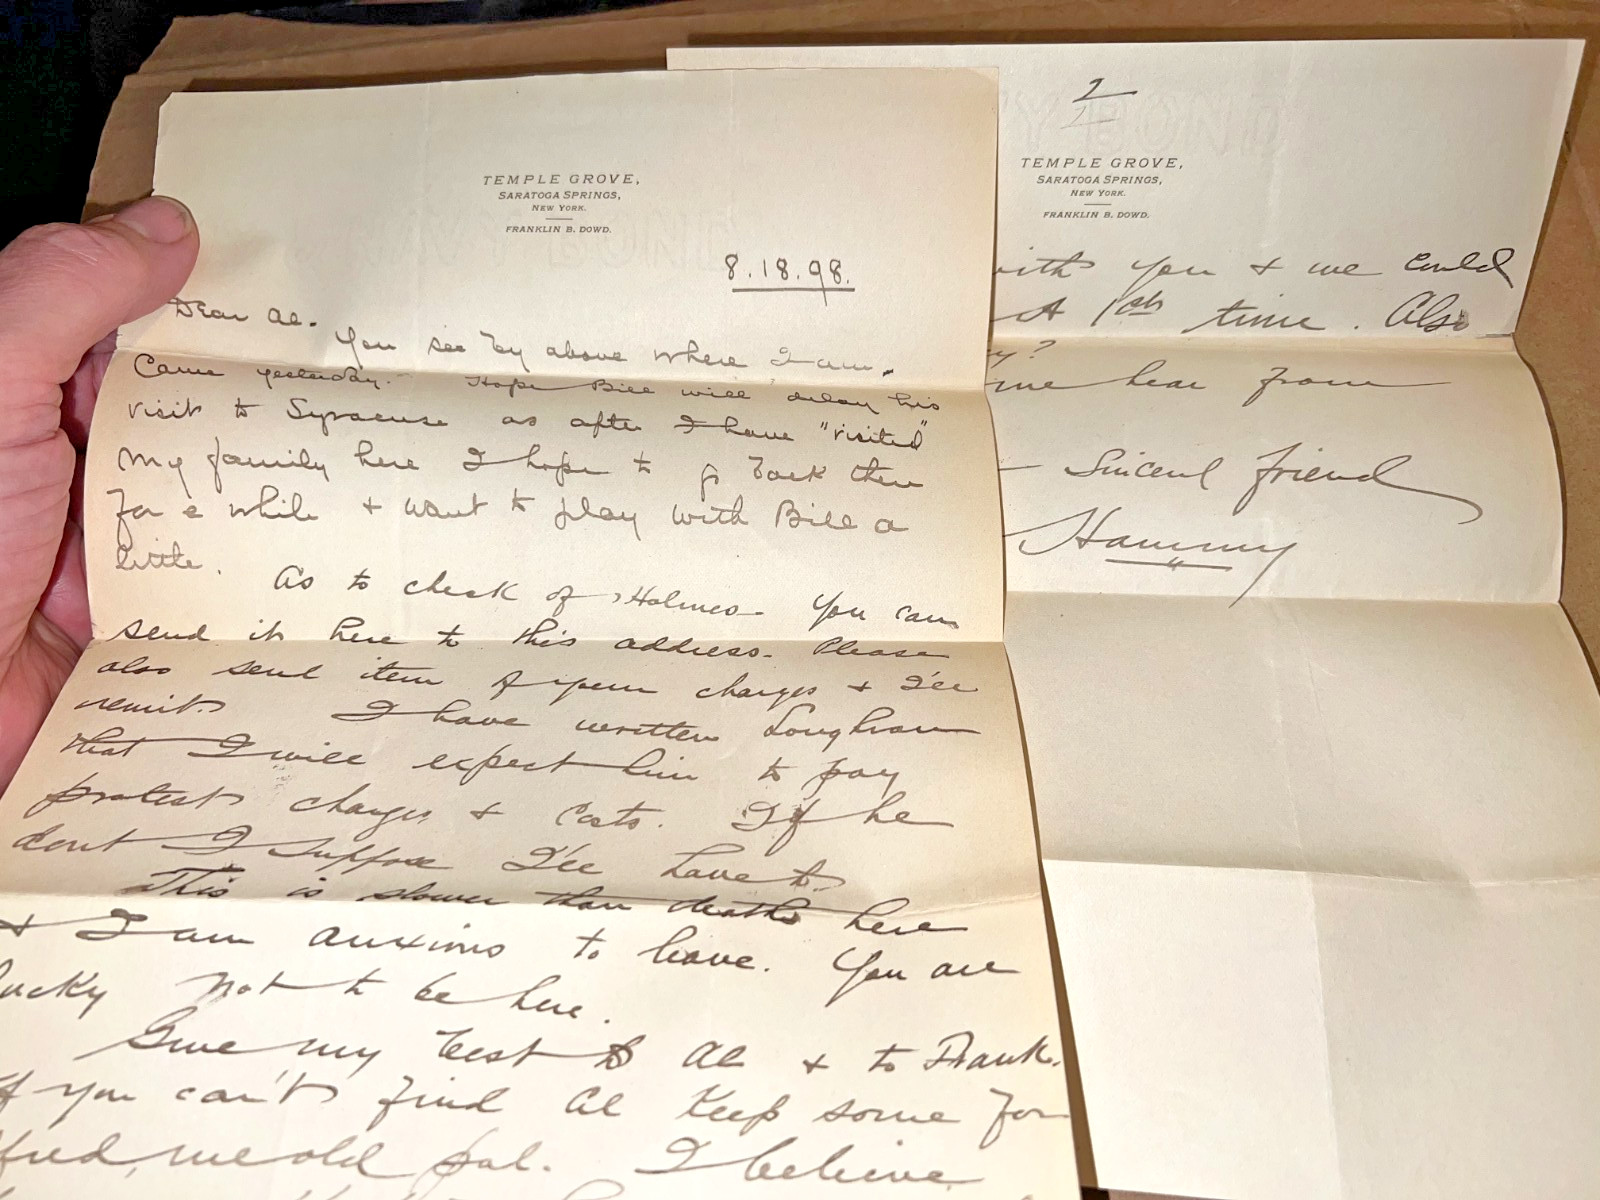 TEMPLE GROVE,
SARATOGA SPRINGS,
NEW YORK.
FRANKLIN B. DOWD.
NAVY BOND
8.18.98.
Dear Al.
You see by above where I am.
Came yesterday. Hope Bill will delay his
visit to Syracuse as after I have "visited"
my family here I hope to go back then
for a while + want to play with Bill a
little.
As to check of Holmes - You can
send it here to this address. Please
also send item of your charges + I'll
remit. I have written Loughran
that I will expect him to pay
protest charges + costs. If he
dont I suppose I'll have to.
This is slower than death here
+ I am anxious to leave. You are
lucky not to be here.
Give my best to Al + to Frank.
If you can't find Al keep some for
me old pal. I believe
2
Y BOND
TEMPLE GROVE,
SARATOGA SPRINGS,
NEW YORK.
FRANKLIN B. DOWD.
with you + we could
1st time. Also
?
me hear from
Sincere friend
Hammy